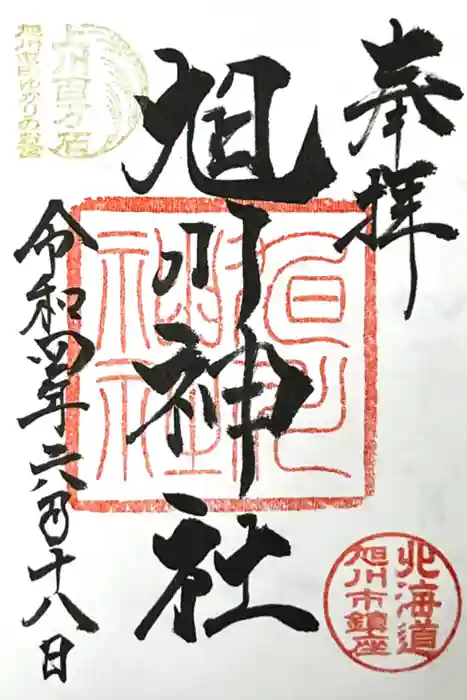 奉拝
北海道
旭川市鎮座
旭川神社
旭川
神社
上川百万石
旭川市米ゆかりの神社
令和四年六月十八日